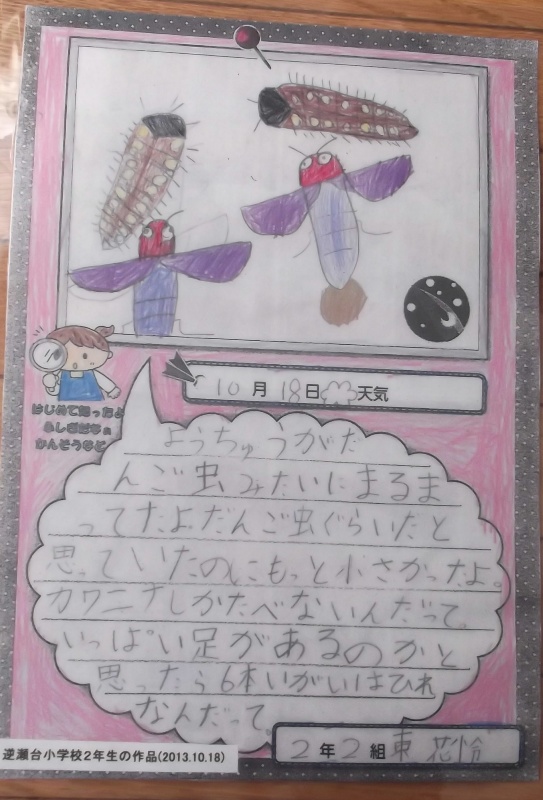 10月18日 天気
はじめて知ったよ
ふしぎだなぁ
かんそうなど
ようちゅうがだ
んご虫みたいにまるま
ってたよだんご虫ぐらいだと
思っていたのにもっと小さかったよ。
カワニナしかたべないんだって。
いっぱい足があるのかと
思ったら6本いがいはひれ
なんだって。
2年2組 東 花怜
逆瀬台小学校2年生の作品(2013.10.18)